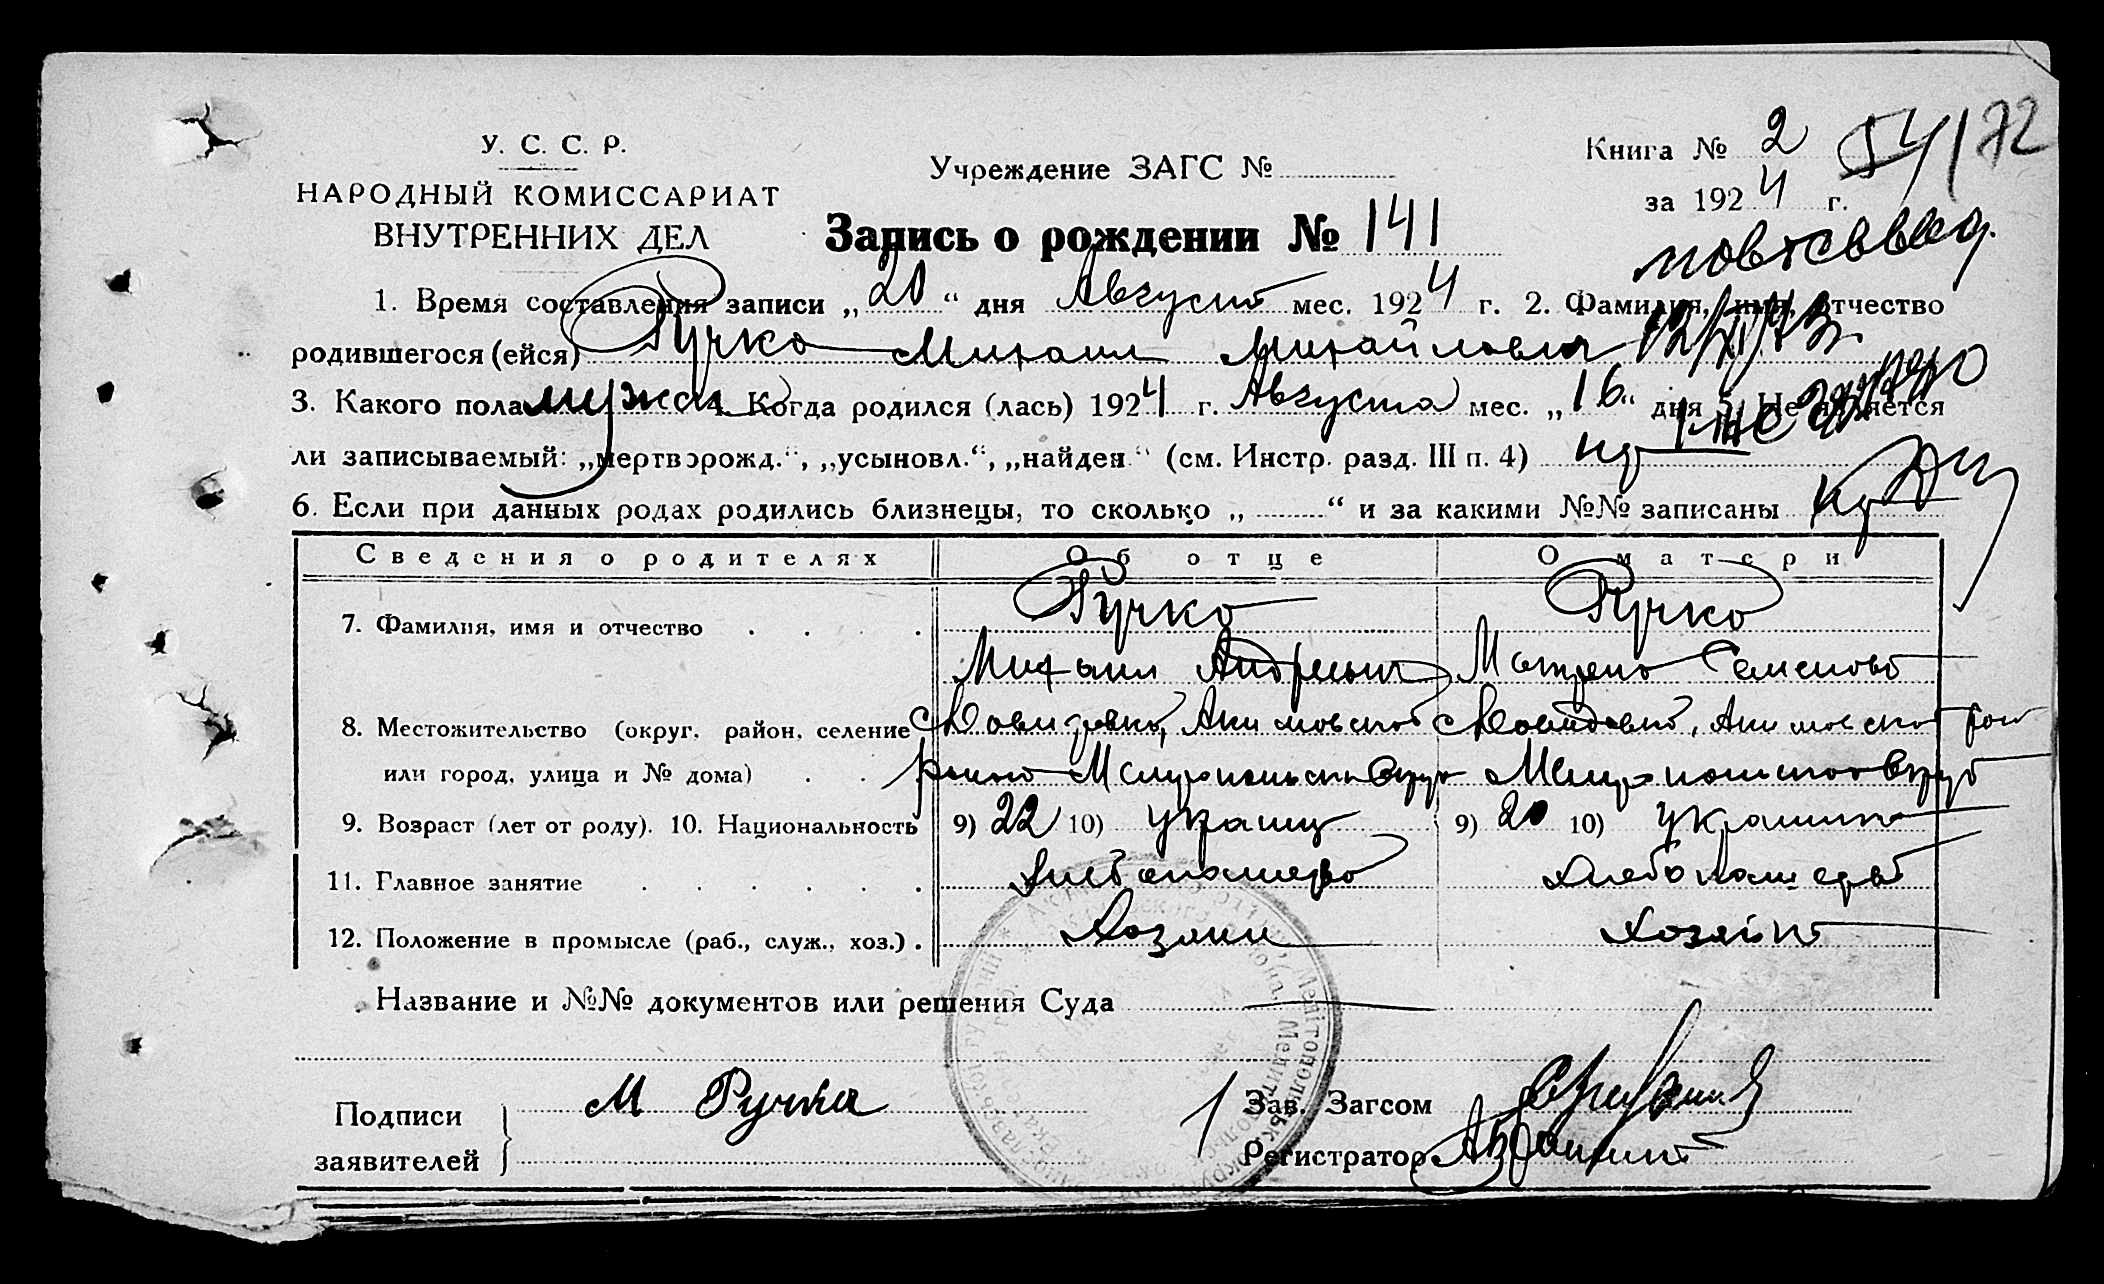 У. С. С. Р.
НАРОДНЫЙ КОМИССАРИАТ
ВНУТРЕННИХ ДЕЛ
Учреждение ЗАГС №
Книга № 2 54/72
за 1924 г.
Запись о рождении № 141
1. Время составления записи „20“ дня Август мес. 1924 г. 2. Фамилия, имя, отчество
родившегося (ейся) Ручко Михаил Михайлович
3. Какого пола мужск 4. Когда родился (лась) 1924 г. Августа мес. „16“ дня 5. Не является
ли записываемый: „мертворожд.“, „усыновл.“, „найден“ (см. Инстр. разд. III п. 4)
6. Если при данных родах родились близнецы, то сколько „ “ и за какими №№ записаны
Сведения о родителях Об отце О матери
7. Фамилия, имя и отчество Ручко Ручко
Михаил Андреевич Матрена Семенова
8. Местожительство (округ, район, селение Давидовка, Акимовской Давидовка, Акимовской
или город, улица и № дома)
9. Возраст (лет от роду). 10. Национальность 9) 22 10) украинц 9) 20 10) украинка
11. Главное занятие хлебопашество хлебопашество
12. Положение в промысле (раб., служ., хоз.) Хозяин Хозяйка
Название и №№ документов или решения Суда
Подписи
заявителей
М Ручка
Зав. Загсом
Регистратор